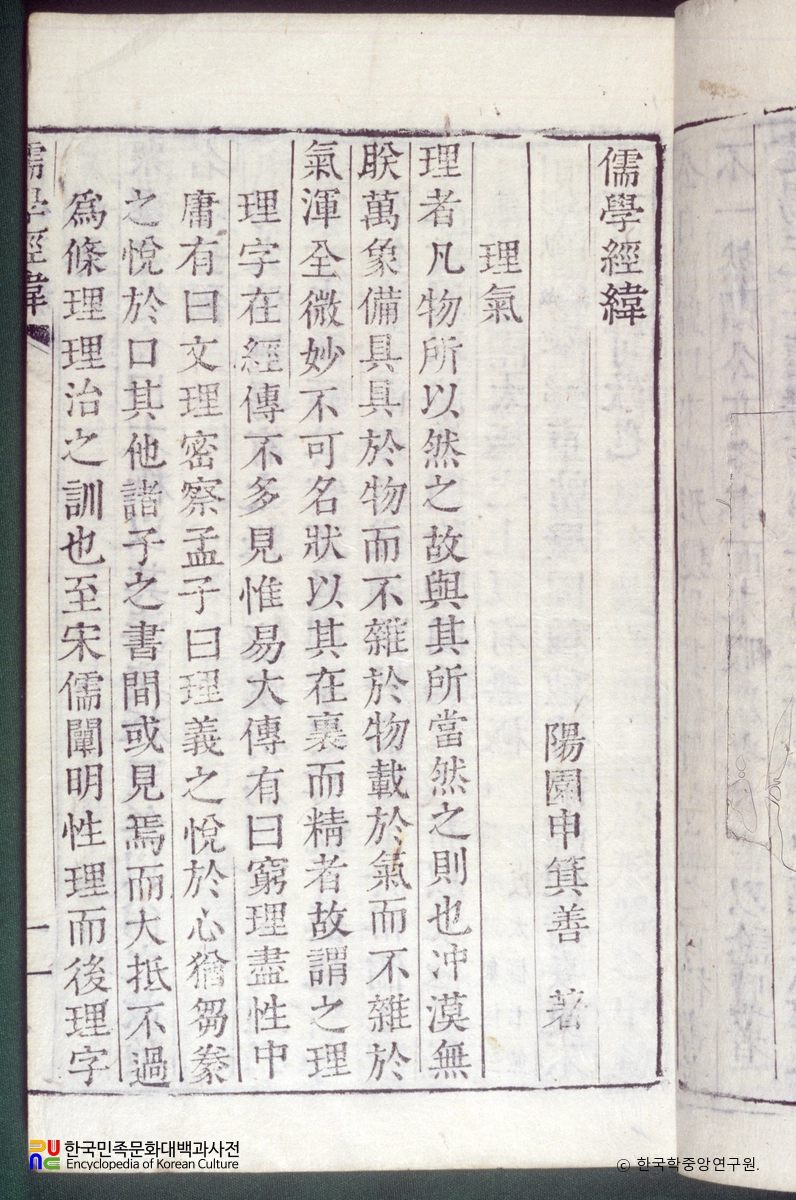 儒學經緯
陽園申箕善 著
理氣
理者凡物所以然之故與其所當然之則也冲漠無
眹萬象備具具於物而不雜於物載於氣而不雜於
氣渾全微妙不可名狀以其在裏而精者故謂之理
理字在經傳不多見惟易大傳有曰窮理盡性中
庸有曰文理密察孟子曰理義之悅於心猶芻豢
之悅於口其他諸子之書間或見焉而大抵不過
爲條理理治之訓也至宋儒闡明性理而後理字
儒學經緯
一
한국민족문화대백과사전
Encyclopedia of Korean Culture
© 한국학중앙연구원.